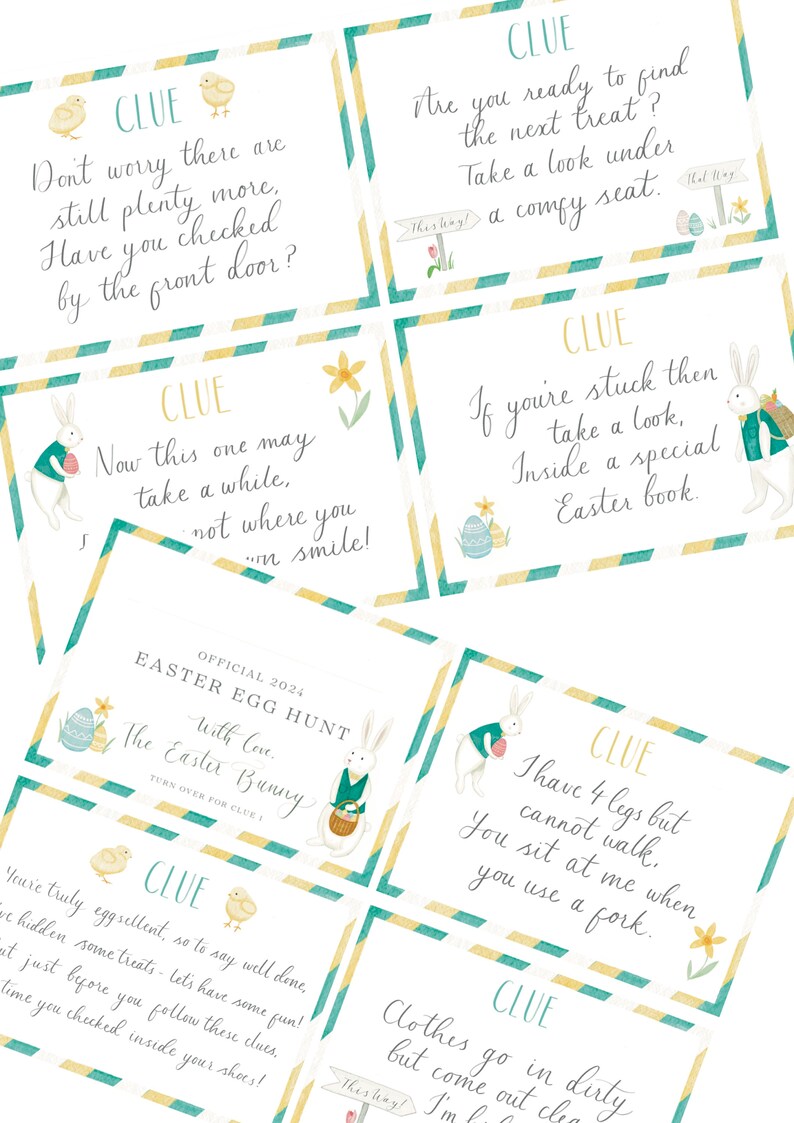 CLUE
Don't worry there are
still plenty more,
Have you checked
by the front door?
CLUE
Are you ready to find
the next treat?
Take a look under
a comfy seat.
This Way!
That Way!
CLUE
Now this one may
take a while,
where you
smile!
CLUE
If you're stuck then
take a look,
Inside a special
Easter book.
OFFICIAL 2024
EASTER EGG HUNT
With love,
The Easter Bunny
TURN OVER FOR CLUE 1
CLUE
I have 4 legs but
cannot walk,
You sit at me when
you use a fork.
CLUE
You're truly eggsellent, so to say well done,
hidden some treats - let's have some fun!
just before you follow these clues,
time you checked inside your shoes!
CLUE
Clothes go in dirty
but come out
I'm
This Way!